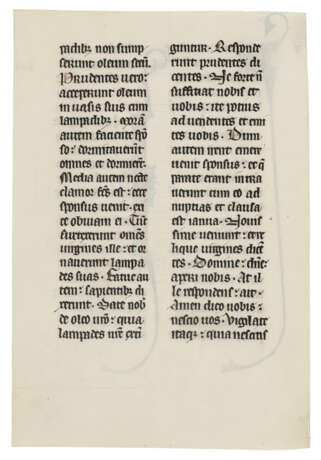 pidibz non sump
serunt oleum secū.
Prudentes uero:
acceperunt oleum
in uasis suis cum
lampidibz. Morā
autem faciente spō
so: dormitauerunt
omnes et dormierūt.
Media autem nocte
clamor fcs est: ecce
sponsus uenit. exi
te obuiam ei. Tūc
surrexerunt omēs
uirgines ille: et or
nauerunt lampa
des suas. Fatue au
tem: sapientibz di
xerunt. Date nob
de oleo uro: quia
lampades nrē exti
guntur. Responde
runt prudentes di
centes. Ne forte nō
sufficiat nobis et
uobis: ite potius
ad uendentes et emi
tes uobis. Dum
autem irent emere
uenit sponsus: et q
parate erant intra
uerunt cum eo ad
nuptias et clausa
est ianua. Nouis
sime ueniunt: et re
lique uirgines dicē
tes. Domine: dnē:
aperi nobis. At il
le respondens: ait.
Amen dico uobis:
nescio uos. Vigilate
itaqz: quia nescitis